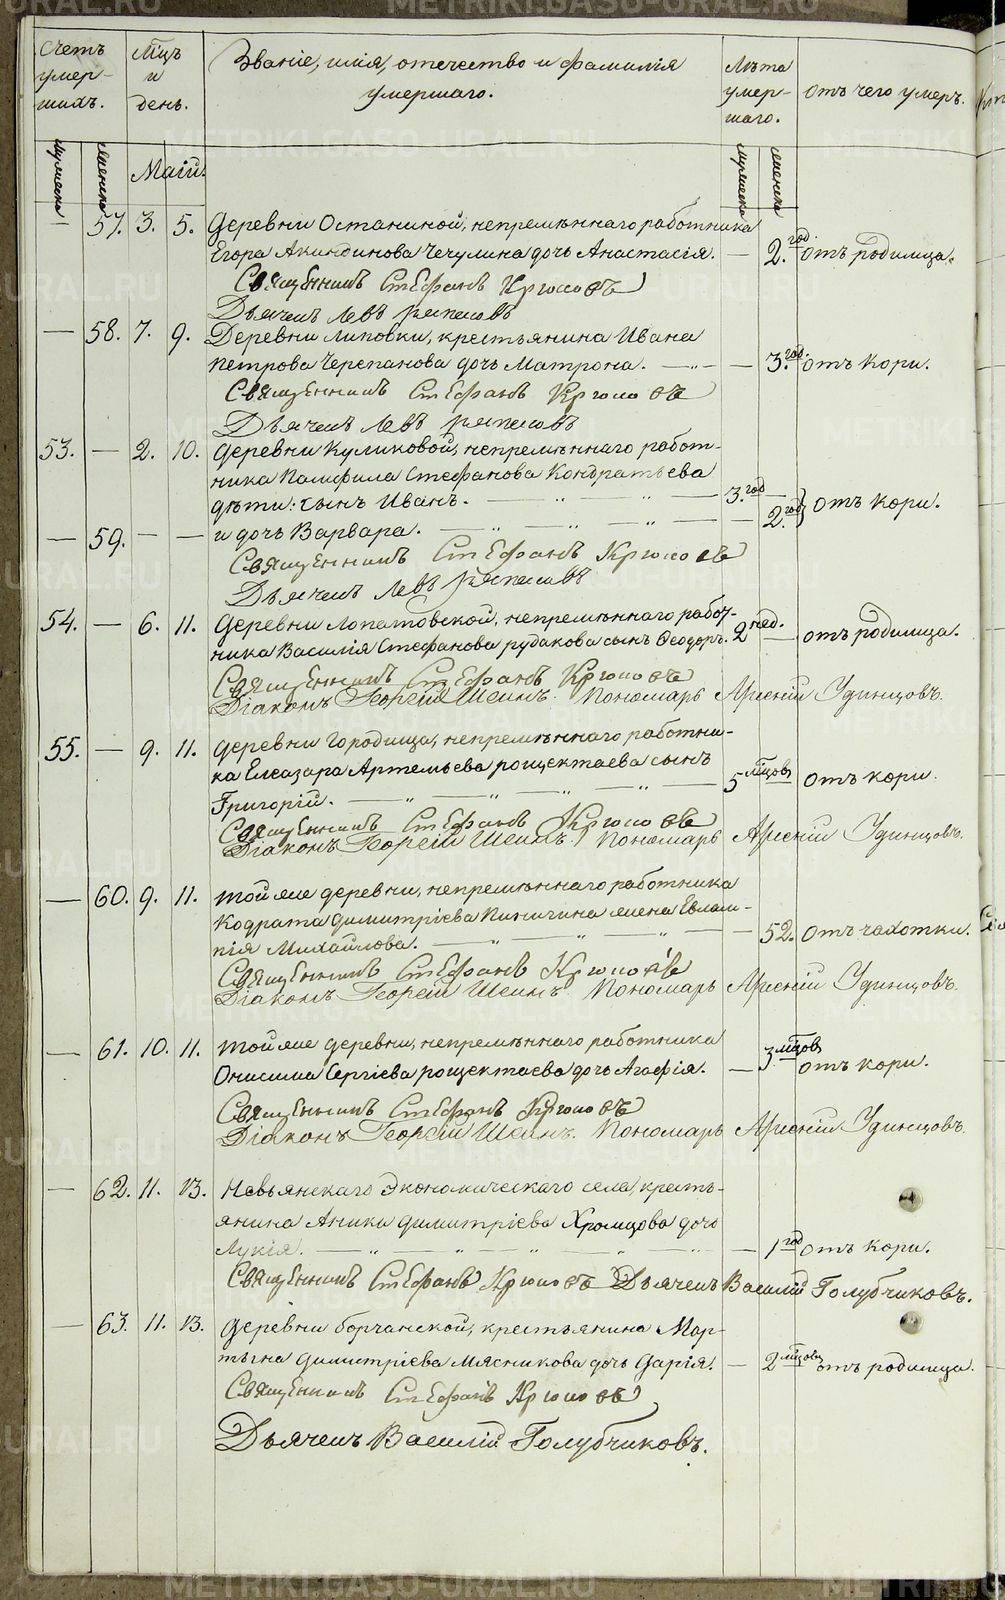 Счетъ умер-шихъ. Мцъ и день. Званіе, имя, отечество и фамилія умершаго. Лѣта умер-шаго. отъ чего умеръ.
мужеска женска Маій. мужеска женска
— 57. 3. 5. Деревни Останиной, непремѣннаго работника
Егора Акиндинова Чечулина дочь Анастасія. — 2. год. отъ родимца.
Священникъ Стефанъ Крюковъ
Дьячекъ Левъ Ряпасовъ
— 58. 7. 9. Деревни Липовки, крестьянина Ивана
Петрова Черепанова дочь Матрона. — 3. год. отъ кори.
Священникъ Стефанъ Крюковъ
Дьячекъ Левъ Ряпасовъ
53. — 2. 10. Деревни Куликовой, непремѣннаго работ-
ника Памфила Стефанова Кондратьева
дѣти: сынъ Иванъ. — 3. год —
— 59. — — и дочь Варвара. — 2. год } отъ кори.
Священникъ Стефанъ Крюковъ
Дьячекъ Левъ Ряпасовъ
54. — 6. 11. Деревни Лопатовской, непремѣннаго работ-
ника Василія Стефанова Рудакова сынъ Ѳеодоръ. 2 нед. — отъ родимца.
Священникъ Стефанъ Крюковъ
Діаконъ Георгій Шеинъ. Пономарь Арсеній Удинцовъ.
55. — 9. 11. Деревни Городища, непремѣннаго работни-
ка Елеазара Артемьева Рощектаева сынъ
Григорій. — 5 мѣцовъ — отъ кори.
Священникъ Стефанъ Крюковъ
Діаконъ Георгій Шеинъ. Пономарь Арсеній Удинцовъ.
— 60. 9. 11. Той же деревни, непремѣннаго работника
Кодрата Димитріева Пиничина жена Евлам-
пія Михайлова. — 52. отъ чахотки.
Священникъ Стефанъ Крюковъ
Діаконъ Георгій Шеинъ. Пономарь Арсеній Удинцовъ.
— 61. 10. 11. Той же деревни, непремѣннаго работника
Онисима Сергіева Рощектаева дочь Агафія. — 3 мѣцовъ отъ кори.
Священникъ Стефанъ Крюковъ
Діаконъ Георгій Шеинъ. Пономарь Арсеній Удинцовъ.
— 62. 11. 13. Невьянскаго Экономическаго села, кресть-
янина Аники Димитріева Хромцова дочь
Лукія. — 1 год отъ кори.
Священникъ Стефанъ Крюковъ Дьячекъ Василій Голубчиковъ.
— 63. 11. 13. Деревни Борчанской, крестьянина Мар-
тына Димитріева Мясникова дочь Дарія. — 2 мѣцовъ отъ родимца.
Священникъ Стефанъ Крюковъ
Дьячекъ Василій Голубчиковъ.
METRIKI.GASO-URAL.RU